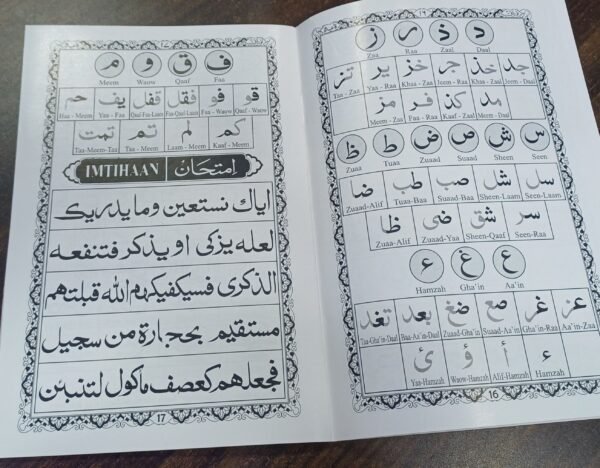 ١٦
د ذ ر ز
Zaa Raa Zaal Daal
جد خذ جر خز یر تز
Taa - Zaa Yaa - Raa Khaa - Zaa Jeem - Raa Khaa - Zaal Jeem - Daal
مد کذ فر مز
Meem - Zaa Faa - Raa Kaaf - Zaal Meem - Daal
س ش ص ض ط ظ
Zuaa Tuaa Zuaad Suaad Sheen Seen
سل شل صب طب ضا
Zuaad-Alif Tuaa - Baa Suaad - Baa Sheen-Laam Seen-Laam
سر شق ضی ظا
Zuaa-Alif Zuaad-Yaa Sheen-Qaaf Seen-Raa
ع غ ء
Hamzah Gha'in Aa'in
عز غر صع ضغ بعد تغد
Taa-Gha'in-Daal Baa-Aa'in-Daal Zuaad-Gha'in Suaad-Aa'in Gha'in-Raa Aa'in-Zaa
ء أ ؤ ئ
Yaa-Hamzah Waow-Hamzah Alif-Hamzah Hamzah
16
ف ق و م
Meem Waow Qaaf Faa
قو فو فقل قفل یف حم
Haa - Meem Yaa - Faa Qaaf-Faa-Laam Faa-Qaaf-Laam Faa - Waow Qaaf - Waow
کم لم تم تمت
Taa-Meem-Taa Taa - Meem Laam - Meem Kaaf - Meem
IMTIHAAN اِمتحَان
ایاك نستعین وما یدریك
لعله یزکی او یذکر فتنفعه
الذکری فسیکفیکهم الله قبلتهم
مستقیم بحجارة من سجیل
فجعلهم کعصف ماکول لتنبئن
17